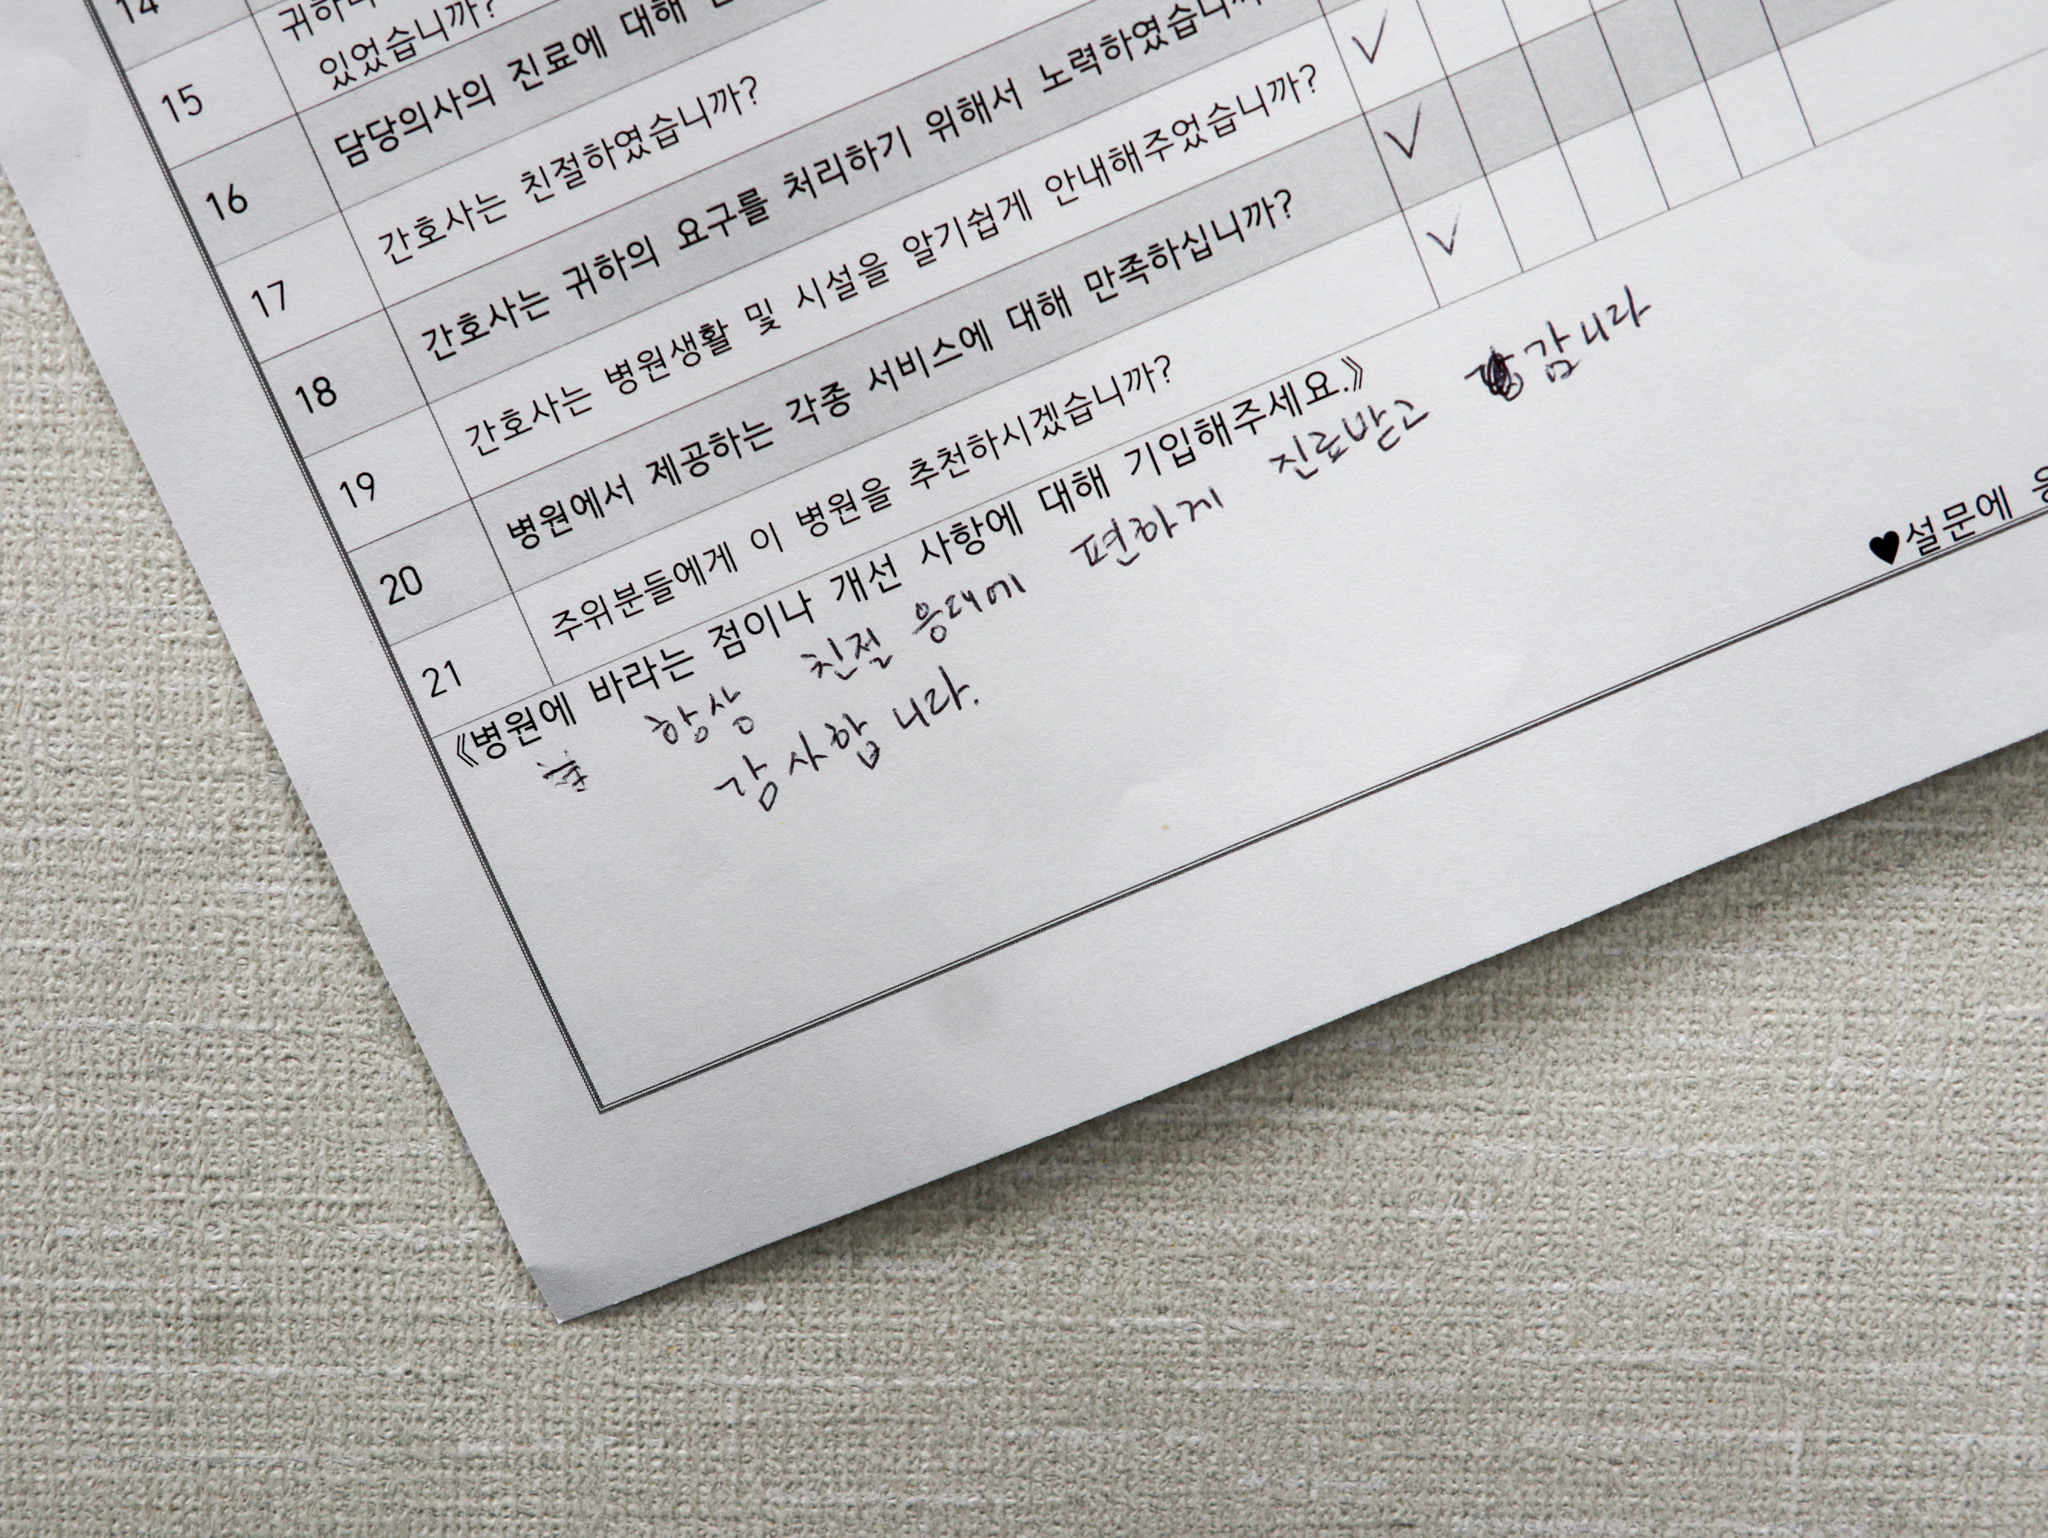 14
15 있었습니까?
16 담당의사의 진료에 대해
17 간호사는 친절하였습니까?
18 간호사는 귀하의 요구를 처리하기 위해서 노력하였습니까
19 간호사는 병원생활 및 시설을 알기쉽게 안내해주었습니까?
20 병원에서 제공하는 각종 서비스에 대해 만족하십니까?
21 주위분들에게 이 병원을 추천하시겠습니까?
《병원에 바라는 점이나 개선 사항에 대해 기입해주세요.》
항상 친절 응대에 편하게 진료받고 감니다
감사합니다.
♥설문에